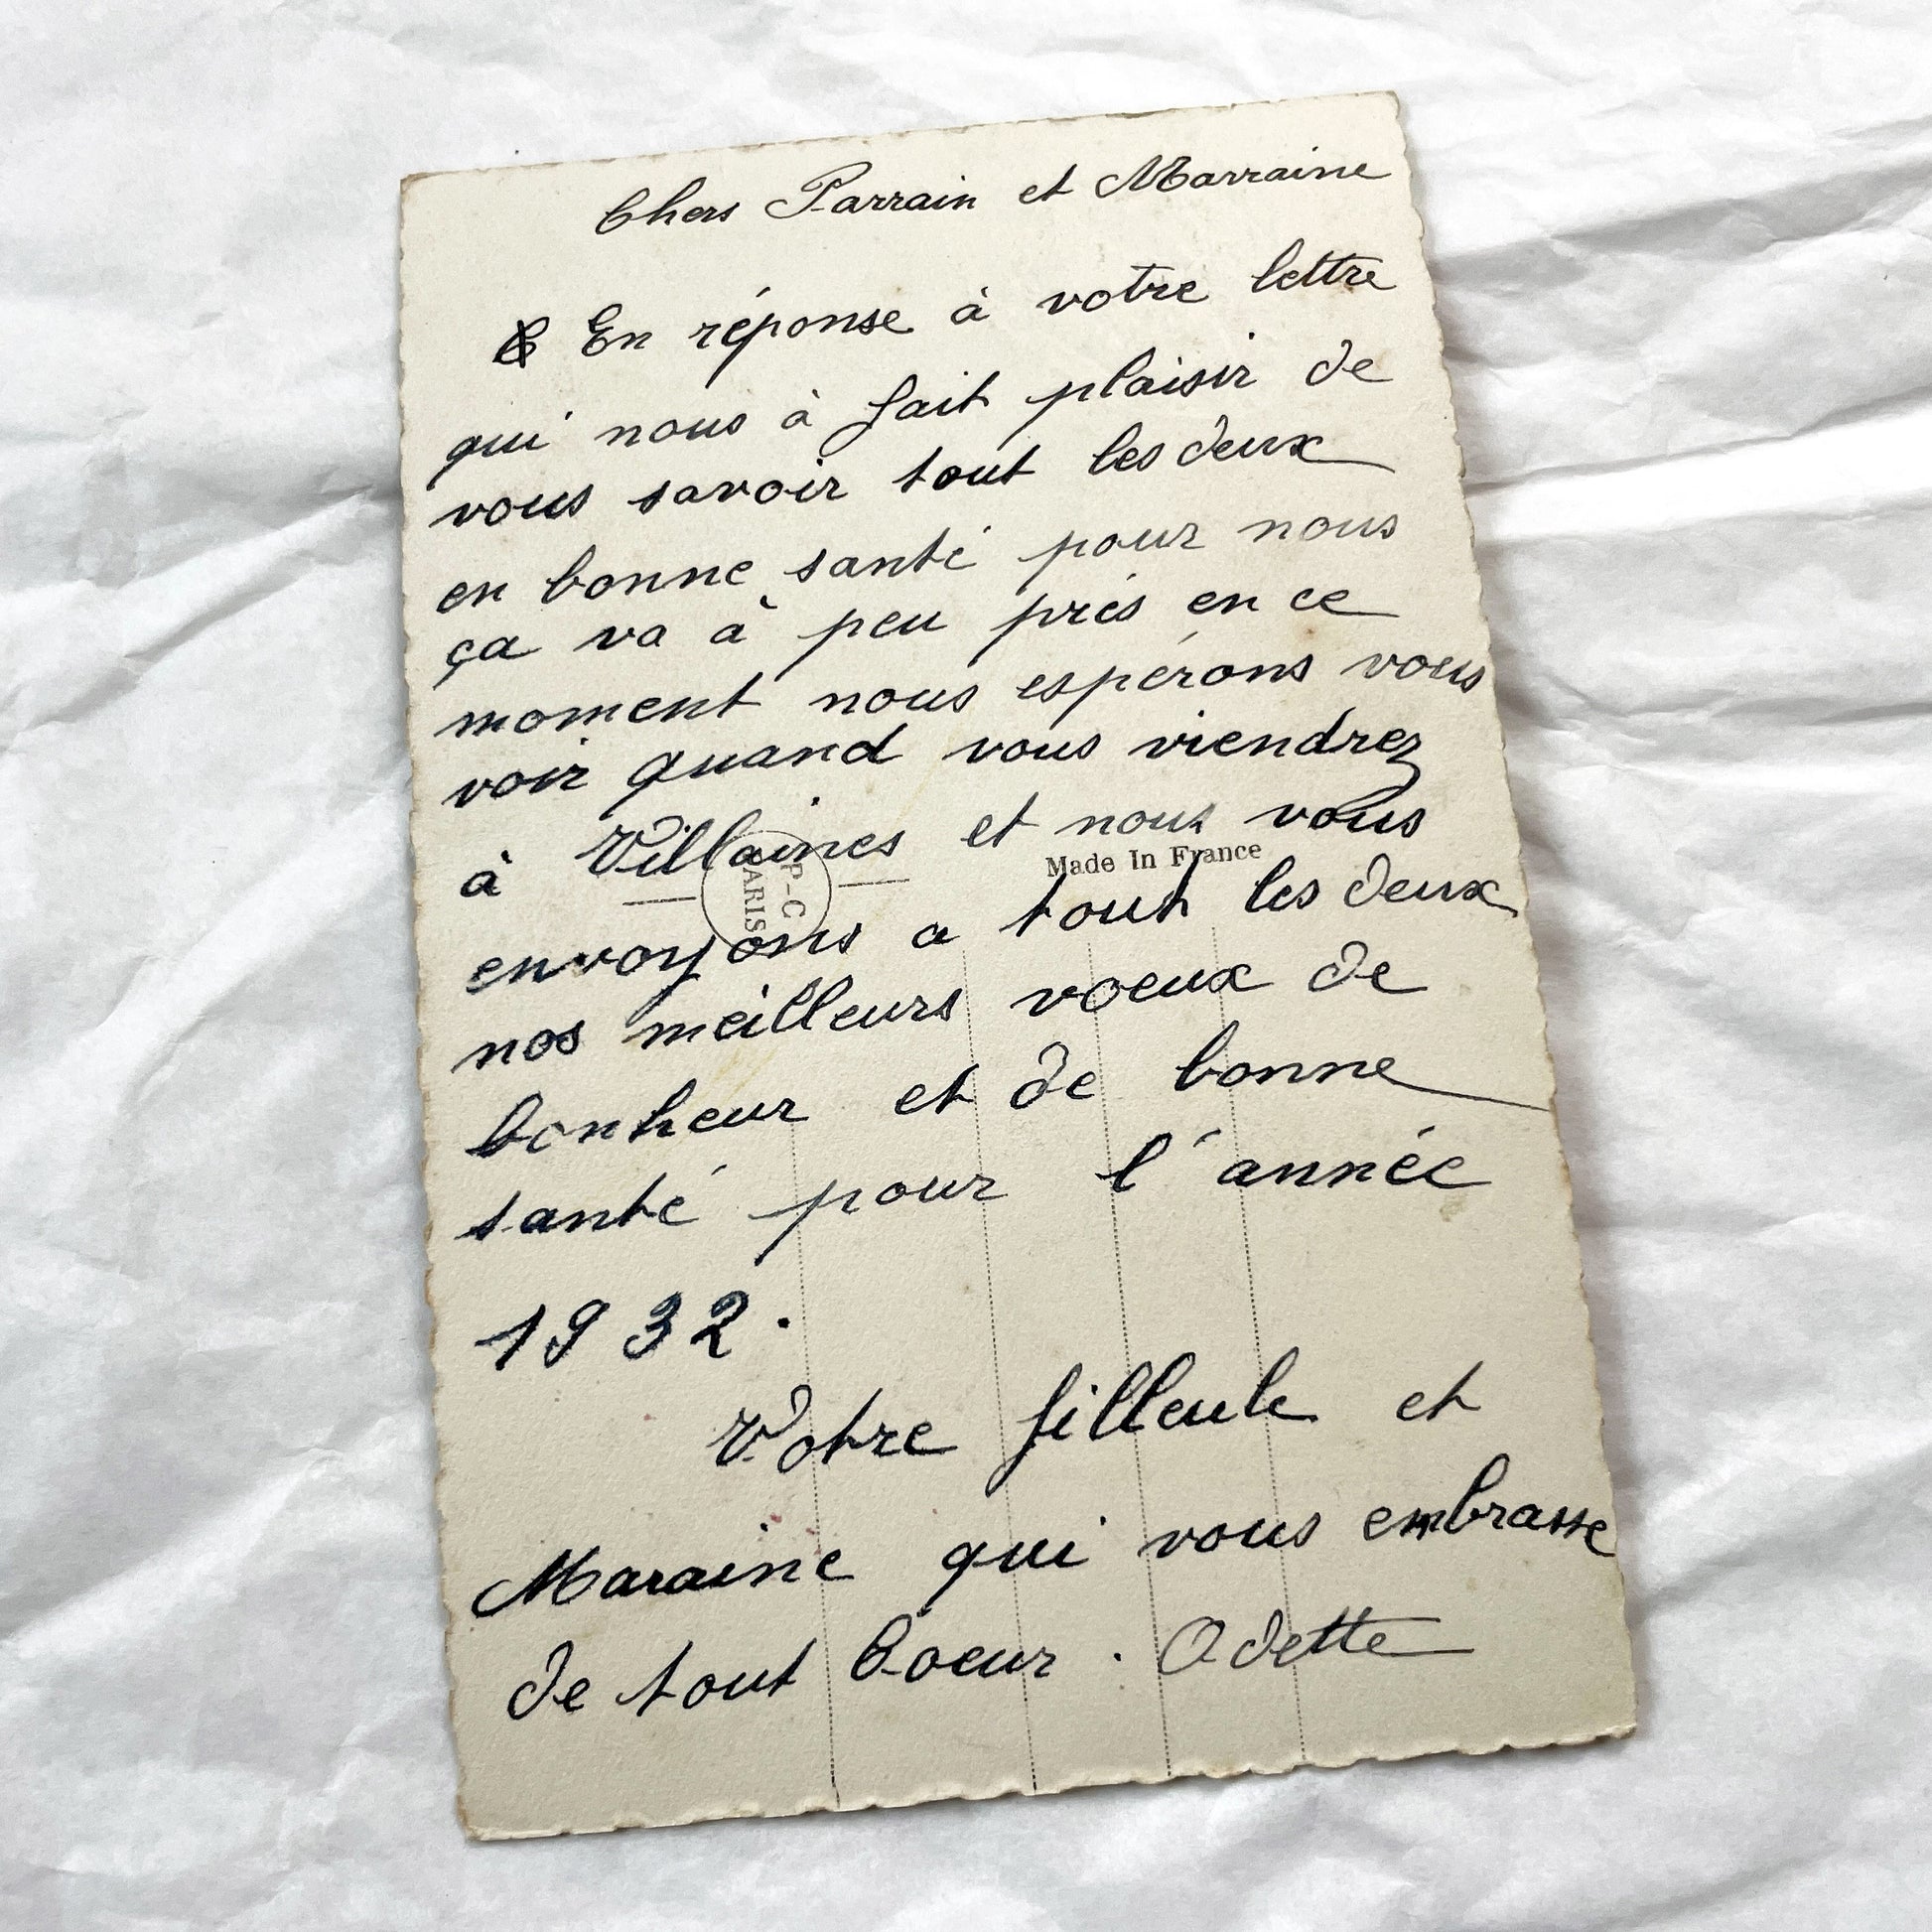 Chers Parrain et Marraine
En réponse à votre lettre
qui nous à fait plaisir de
vous savoir tout les deux
en bonne santé pour nous
ça va à peu près en ce
moment nous espérons vous
voir quand vous viendrez
à Villaines et nous vous
P-C
PARIS
Made In France
envoyons a tout les deux
nos meilleurs voeux de
bonheur et de bonne
santé pour l'année
1932.
Votre filleule et
Maraine qui vous embrasse
de tout Coeur. Odette